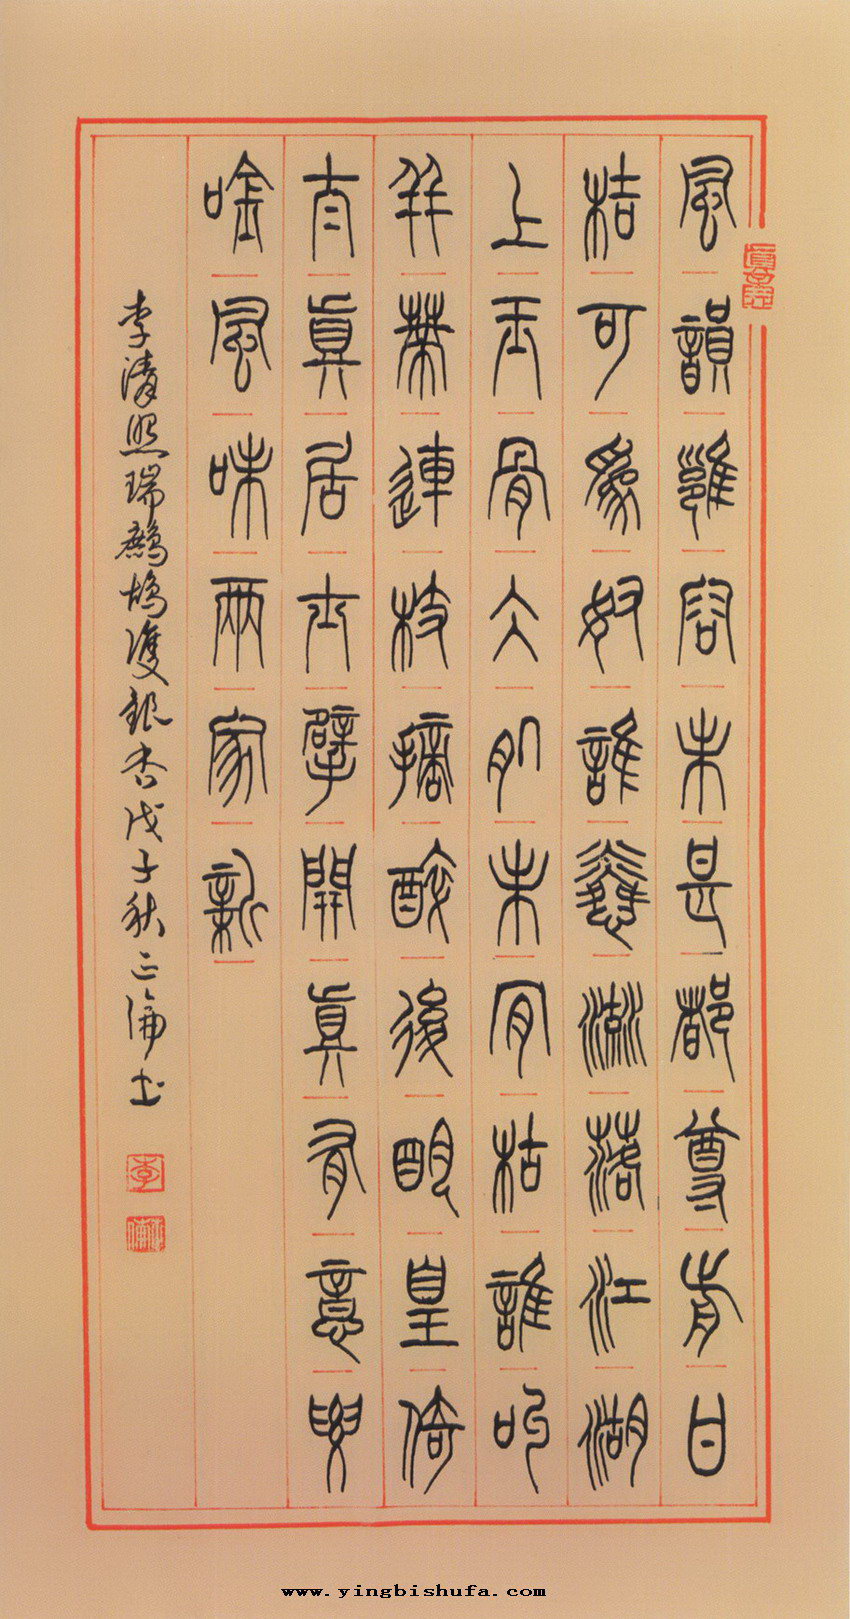 風韻雍容未甚都尊前甘
桔可爲奴誰憐流落江湖
上玉骨仌肌未肎枯誰叫
并蒂連枝摘醉後明皇倚
太眞居士擘開眞有意要
唫風味兩家新
李清照瑞鷓鴣雙銀杏戊子秋正倫书
www.yingbishufa.com